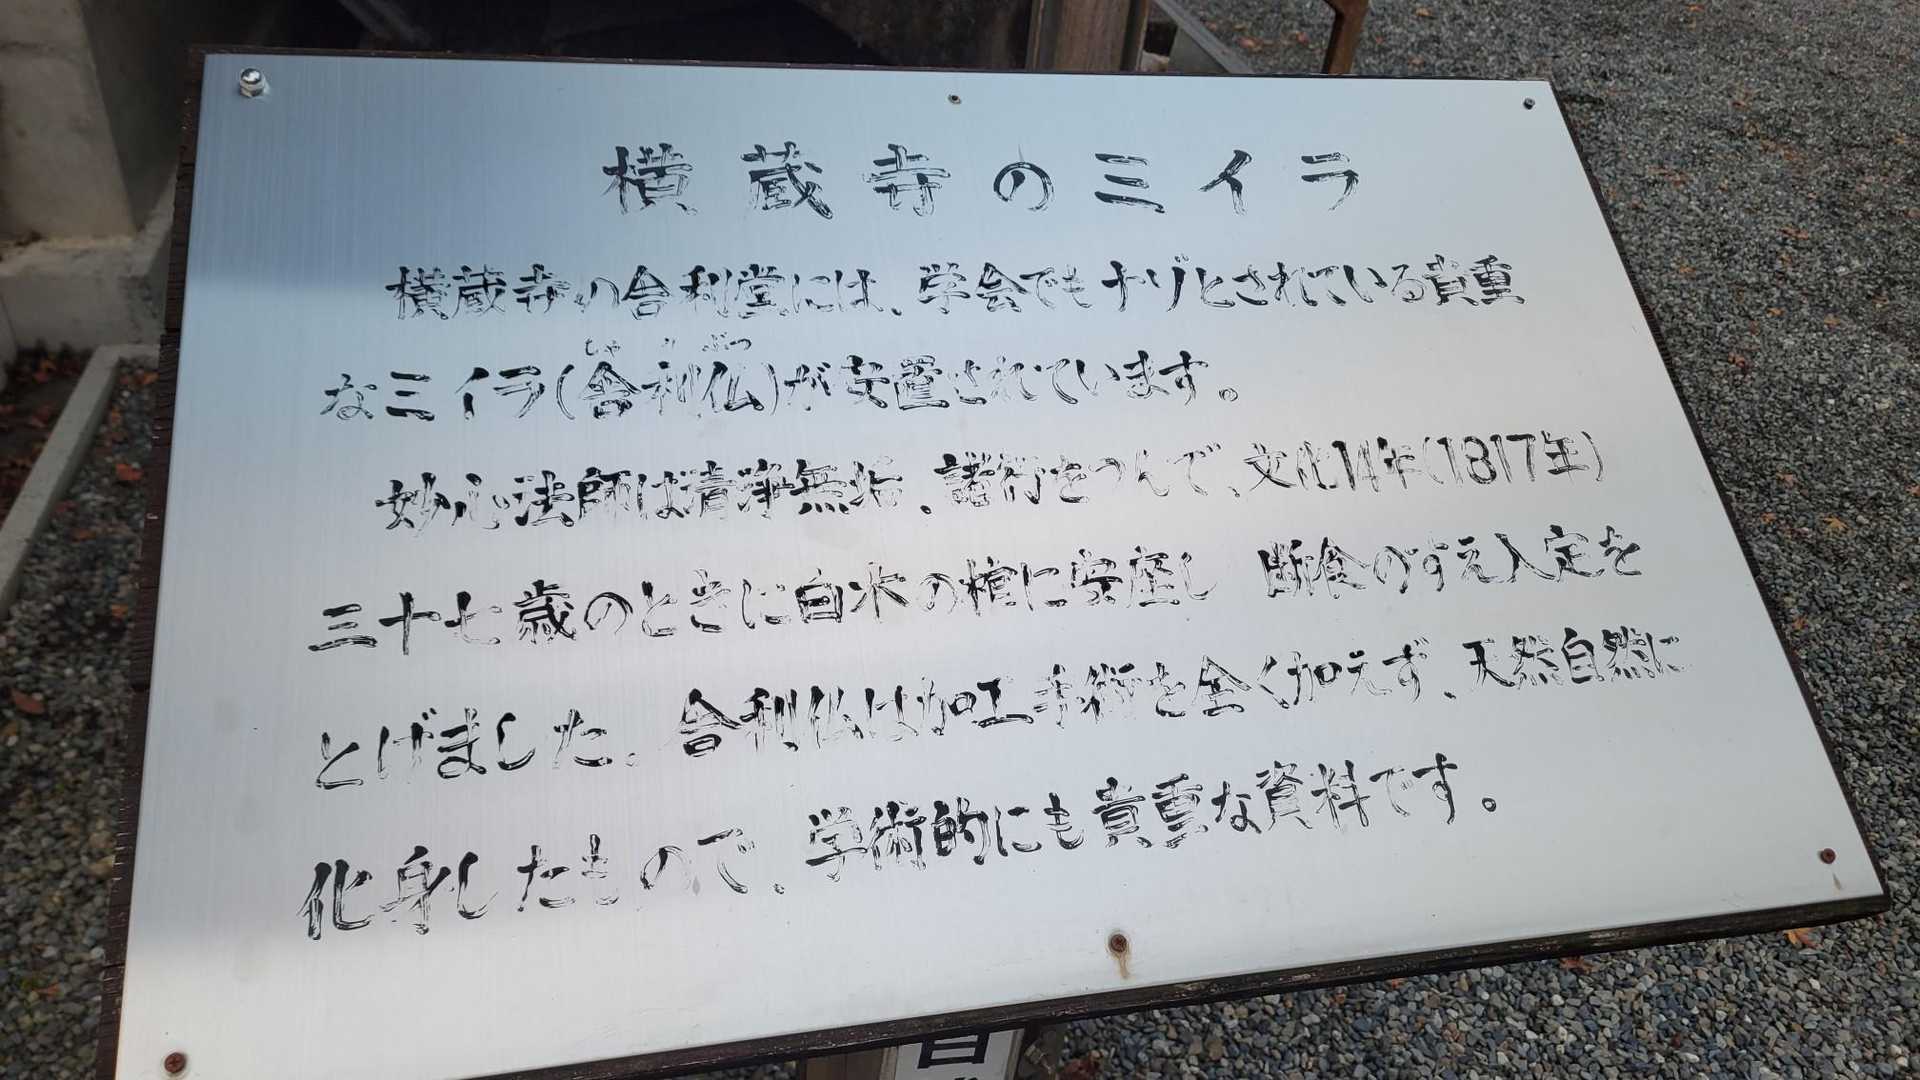 横蔵寺のミイラ
横蔵寺の舎利堂には、学会でもナゾとされている貴重
しゃ り ぶつ
なミイラ(舎利仏)が安置されています。
妙心法師は清浄無垢、諸行をつんで、文化14年(1817年)
三十七歳のときに白木の棺に安座し 断食のすえ入定を
とげました。舎利仏は加工手術を全く加えず、天然自然に
化身したもので、学術的にも貴重な資料です。